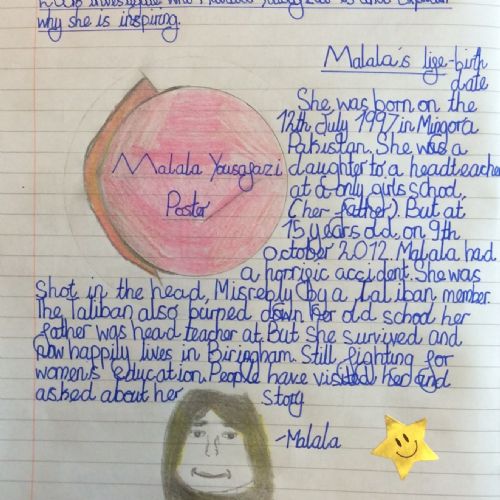 investigate who
why she is inspiring.
Malala's lige-birth
date
She was born on the
12th July 1997 in Mingora
Pakistan. She was a
daughter to a headteacher
at a only girls school.
(her father). But at
15 years old, on 9th
october 2012. Malala had
a horrigic accident. She was
Shot in the head, Misrebly by a Taliban member.
The Taliban also burped down her old school her
father was head teacher at. But She survived and
now happily lives in Biringham. Still fighting for
women's education. People have visited her and
asked about her story
-Malala
Malala Yousagazi
Poster